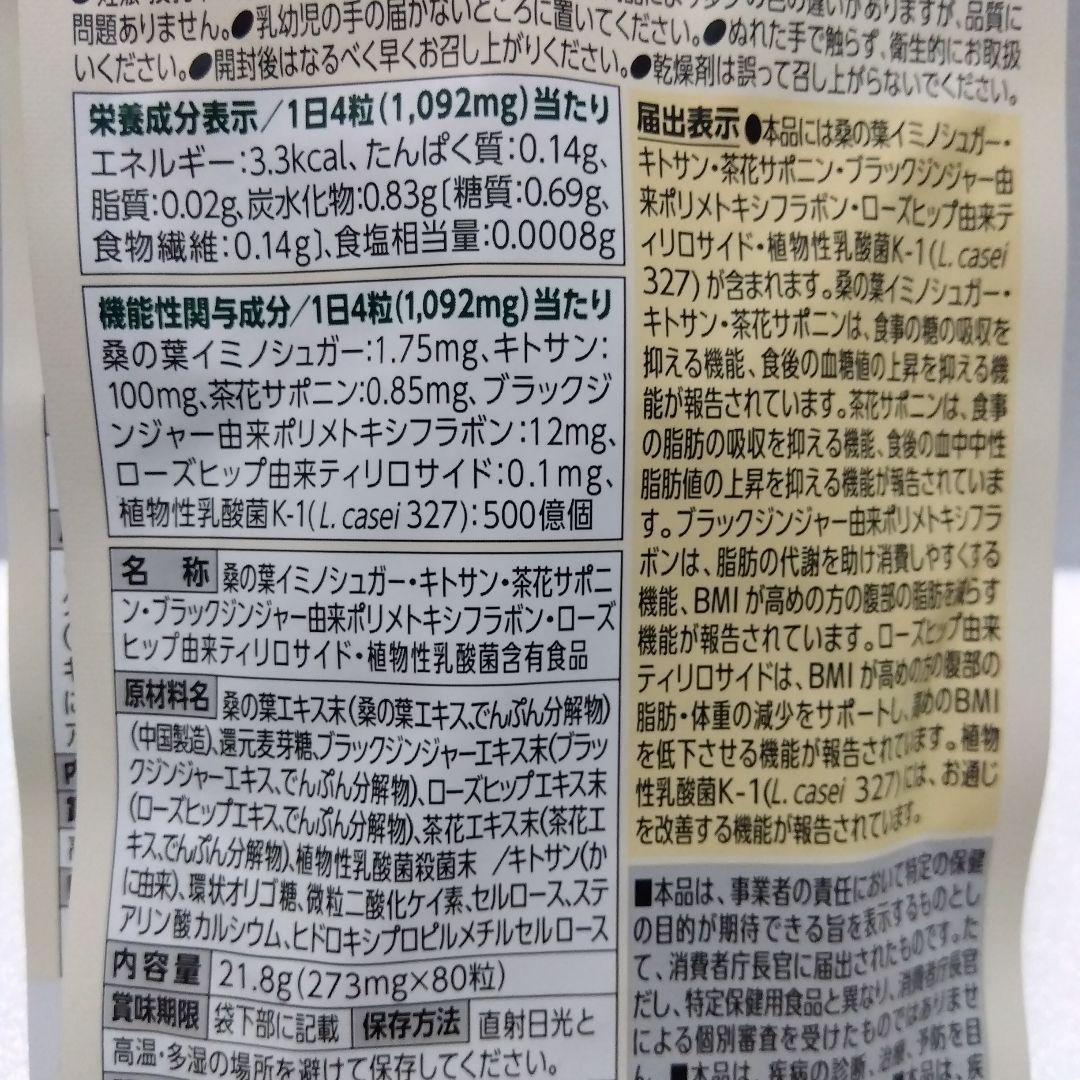 問題ありません。●乳幼児の手の届かないところに置いてください。●ぬれた手で触らず、衛生的にお取扱
いください。●開封後はなるべく早くお召し上がりください。●乾燥剤は誤って召し上がらないでください。
栄養成分表示/1日4粒(1,092mg)当たり
エネルギー:3.3kcal、たんぱく質:0.14g、
脂質:0.02g、炭水化物:0.83g〔糖質:0.69g、
食物繊維:0.14g〕、食塩相当量:0.0008g
機能性関与成分/1日4粒(1,092mg)当たり
桑の葉イミノシュガー:1.75mg、キトサン:
100mg、茶花サポニン:0.85mg、ブラックジ
ンジャー由来ポリメトキシフラボン:12mg、
ローズヒップ由来ティリロサイド:0.1mg、
植物性乳酸菌K-1(L. casei 327):500億個
名 称 桑の葉イミノシュガー・キトサン・茶花サポニ
ン・ブラックジンジャー由来ポリメトキシフラボン・ローズ
ヒップ由来ティリロサイド・植物性乳酸菌含有食品
原材料名 桑の葉エキス末(桑の葉エキス、でんぷん分解物)
(中国製造)、還元麦芽糖、ブラックジンジャーエキス末(ブラッ
クジンジャーエキス、でんぷん分解物)、ローズヒップエキス末
(ローズヒップエキス、でんぷん分解物)、茶花エキス末(茶花エ
キス、でんぷん分解物)、植物性乳酸菌殺菌末 /キトサン(か
に由来)、環状オリゴ糖、微粒二酸化ケイ素、セルロース、ステ
アリン酸カルシウム、ヒドロキシプロピルメチルセルロース
内容量 21.8g(273mg×80粒)
賞味期限 袋下部に記載 保存方法 直射日光と
高温・多湿の場所を避けて保存してください。
届出表示 ●本品には桑の葉イミノシュガー・
キトサン・茶花サポニン・ブラックジンジャー由
来ポリメトキシフラボン・ローズヒップ由来テ
ィリロサイド・植物性乳酸菌K-1(L. casei
327)が含まれます。桑の葉イミノシュガー・
キトサン・茶花サポニンは、食事の糖の吸収を
抑える機能、食後の血糖値の上昇を抑える機
能が報告されています。茶花サポニンは、食事
の脂肪の吸収を抑える機能、食後の血中中性
脂肪値の上昇を抑える機能が報告されていま
す。ブラックジンジャー由来ポリメトキシフラ
ボンは、脂肪の代謝を助け消費しやすくする
機能、BMIが高めの方の腹部の脂肪を減らす
機能が報告されています。ローズヒップ由来
ティリロサイドは、BMIが高めの方の腹部の
脂肪・体重の減少をサポートし、高めのBMI
を低下させる機能が報告されています。植物
性乳酸菌K-1(L. casei 327)には、お通じ
を改善する機能が報告されています。
■本品は、事業者の責任において特定の保健
の目的が期待できる旨を表示するものとし
て、消費者庁長官に届出されたものです。た
だし、特定保健用食品と異なり、消費者庁長官
による個別審査を受けたものではありませ
ん。■本品は、疾病の診断、治療、予防を目